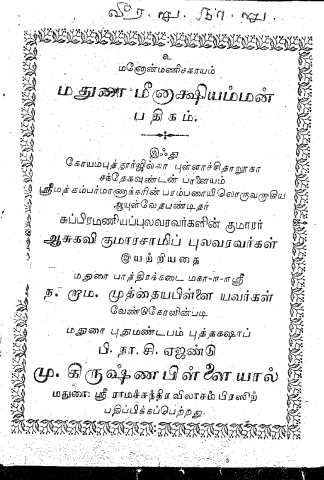 உ
மனோன்மணிசகாயம்
மதுரை மீனாக்ஷியம்மன்
பதிகம்.
இஃது
கோயம்புத்தூர்ஜில்லா புள்ளாச்சிதாலூகா
சந்தேகவுண்டன் பாளையம்
ஸ்ரீமத் கம்பர்மாணாக்கரின் பரம்பரையிலொருவராகிய
ஆயுள்வேதபண்டிதர்
சுப்பிரமணியப்புலவரவர்களின் குமாரர்
ஆசுகவி குமாரசாமிப் புலவரவர்கள்
இயற்றியதை
மதுரை பாத்திரக்கடை மகா-ா-ா-ஸ்ரீ
ந. ரும. முத்தையபிள்ளை யவர்கள்
வேண்டுகோளின்படி
மதுரை புதுமண்டபம் புத்தகஷாப்
பி. நா. சி. ஏஜண்டு
மு. கிருஷ்ணபிள்ளையால்
மதுரை: ஸ்ரீ ராமச்சந்திரவிலாசம் பிரஸிற்
பதிப்பிக்கப்பெற்றது.